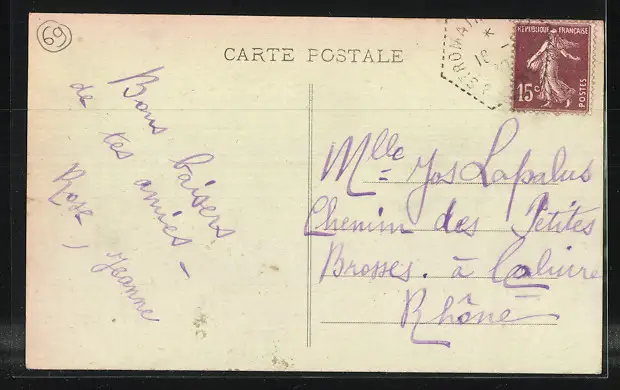 69
CARTE POSTALE
RÉPUBLIQUE FRANÇAISE
15c
POSTES
ST ROMAIN
18
Bons baisers
de tes amies -
Rose, Jeanne
Mlle Jos Lapalus
Chemin des Petites
Brosses. à Caluire
Rhône